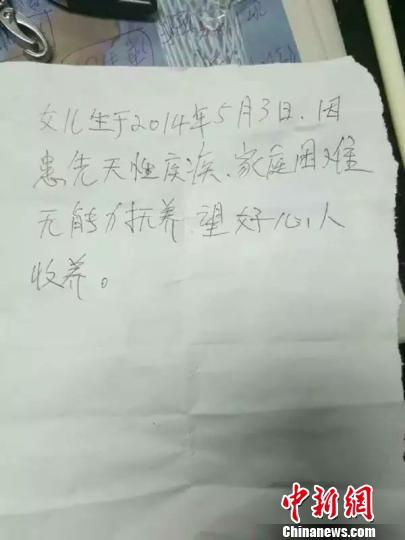 女儿生于2014年5月3日、因
患先天性疾病、家庭困难
无能力抚养、望好心人
收养。
中新网
Chinanews.com